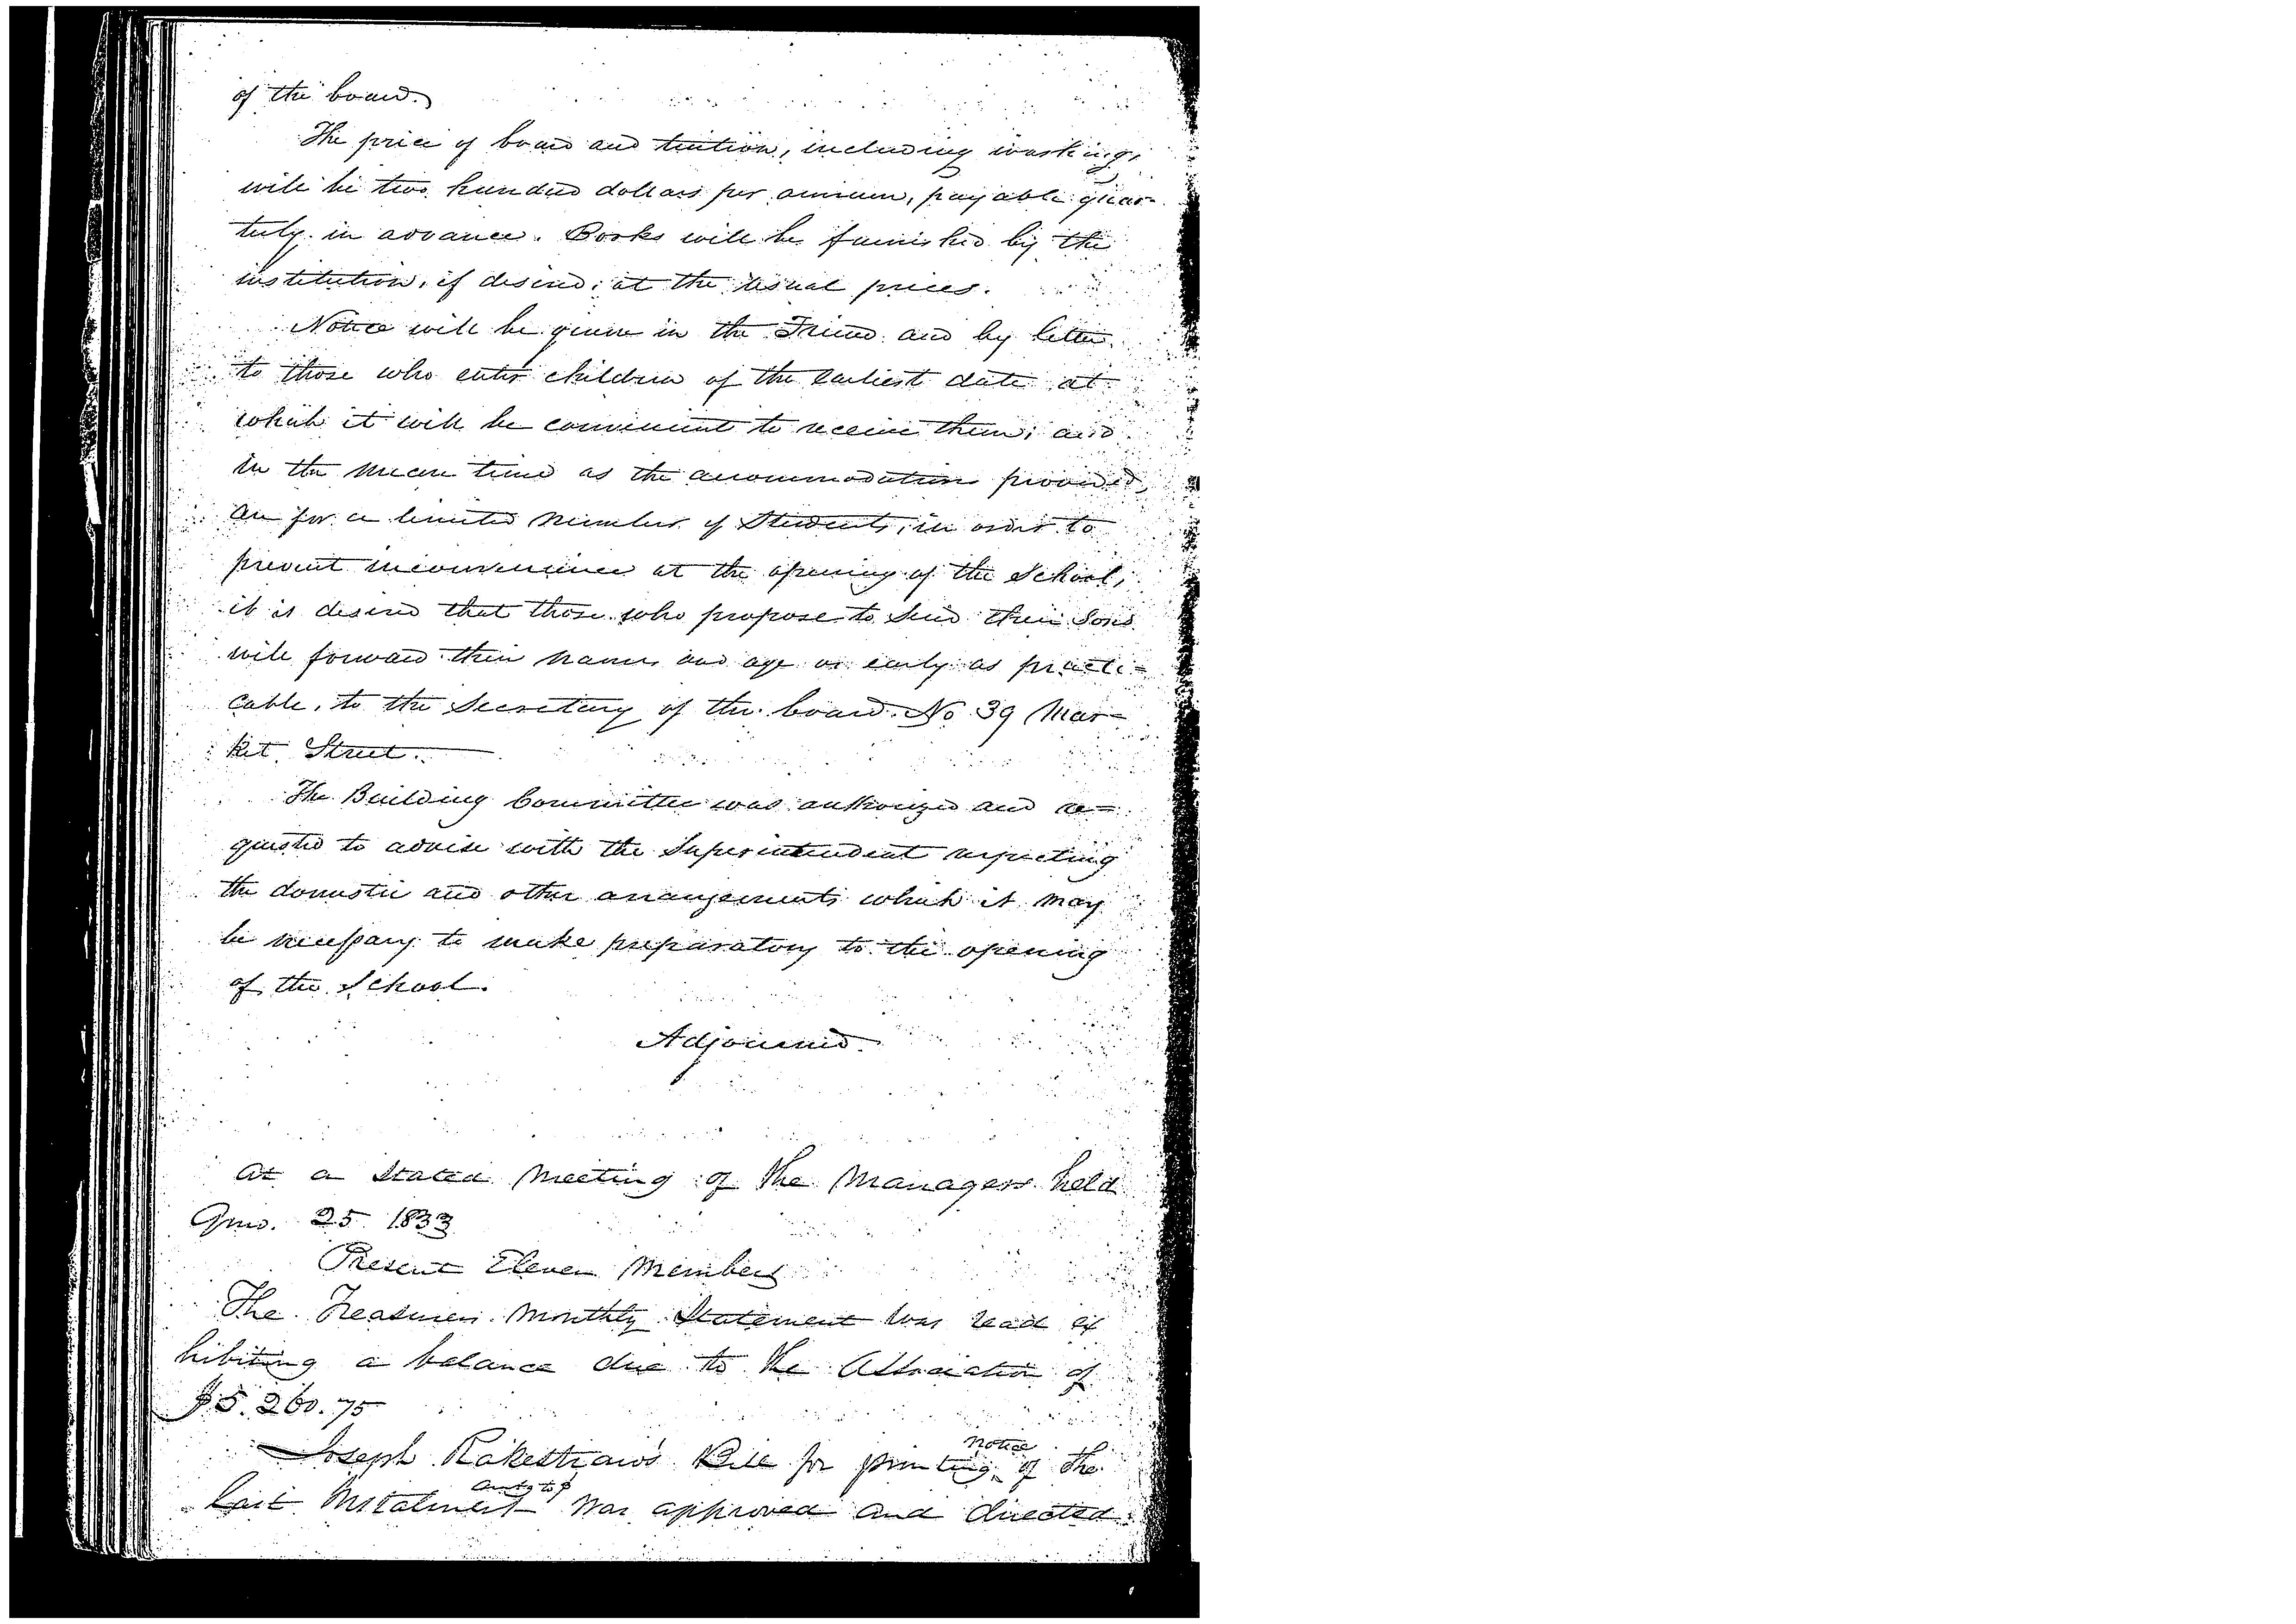 of the board.
The price of board and tuition, including washing,
will be two hundred dollars per annum, payable quar-
terly in advance. Books will be furnished by the
institution, if desired, at the usual prices.
Notice will be given in the Friend and by letter
to those who enter children of the earliest date at
which it will be convenient to receive them; and
in the mean time as the accommodation provided
are for a limited number of Students, in order to
prevent inconvenience at the opening of the School,
it is desired that those who propose to send their Sons
will forward their names and age as early as practi-
cable, to the Secretary of the board. No 39 Mar-
ket Street.
The Building Committee was authorized and re-
quested to advise with the Superintendent respecting
the domestic and other arrangements which it may
be necessary to make preparatory to the opening
of the School.
Adjourned.
At a Stated Meeting of the Managers held
25 1833
Present Eleven Members
The Treasurers Monthly Statement was read ex
hibiting a balance due to the Association of
$5.260.75
Joseph Rakestraw's Bill for printing notice of the
last Instalment was approved and directed